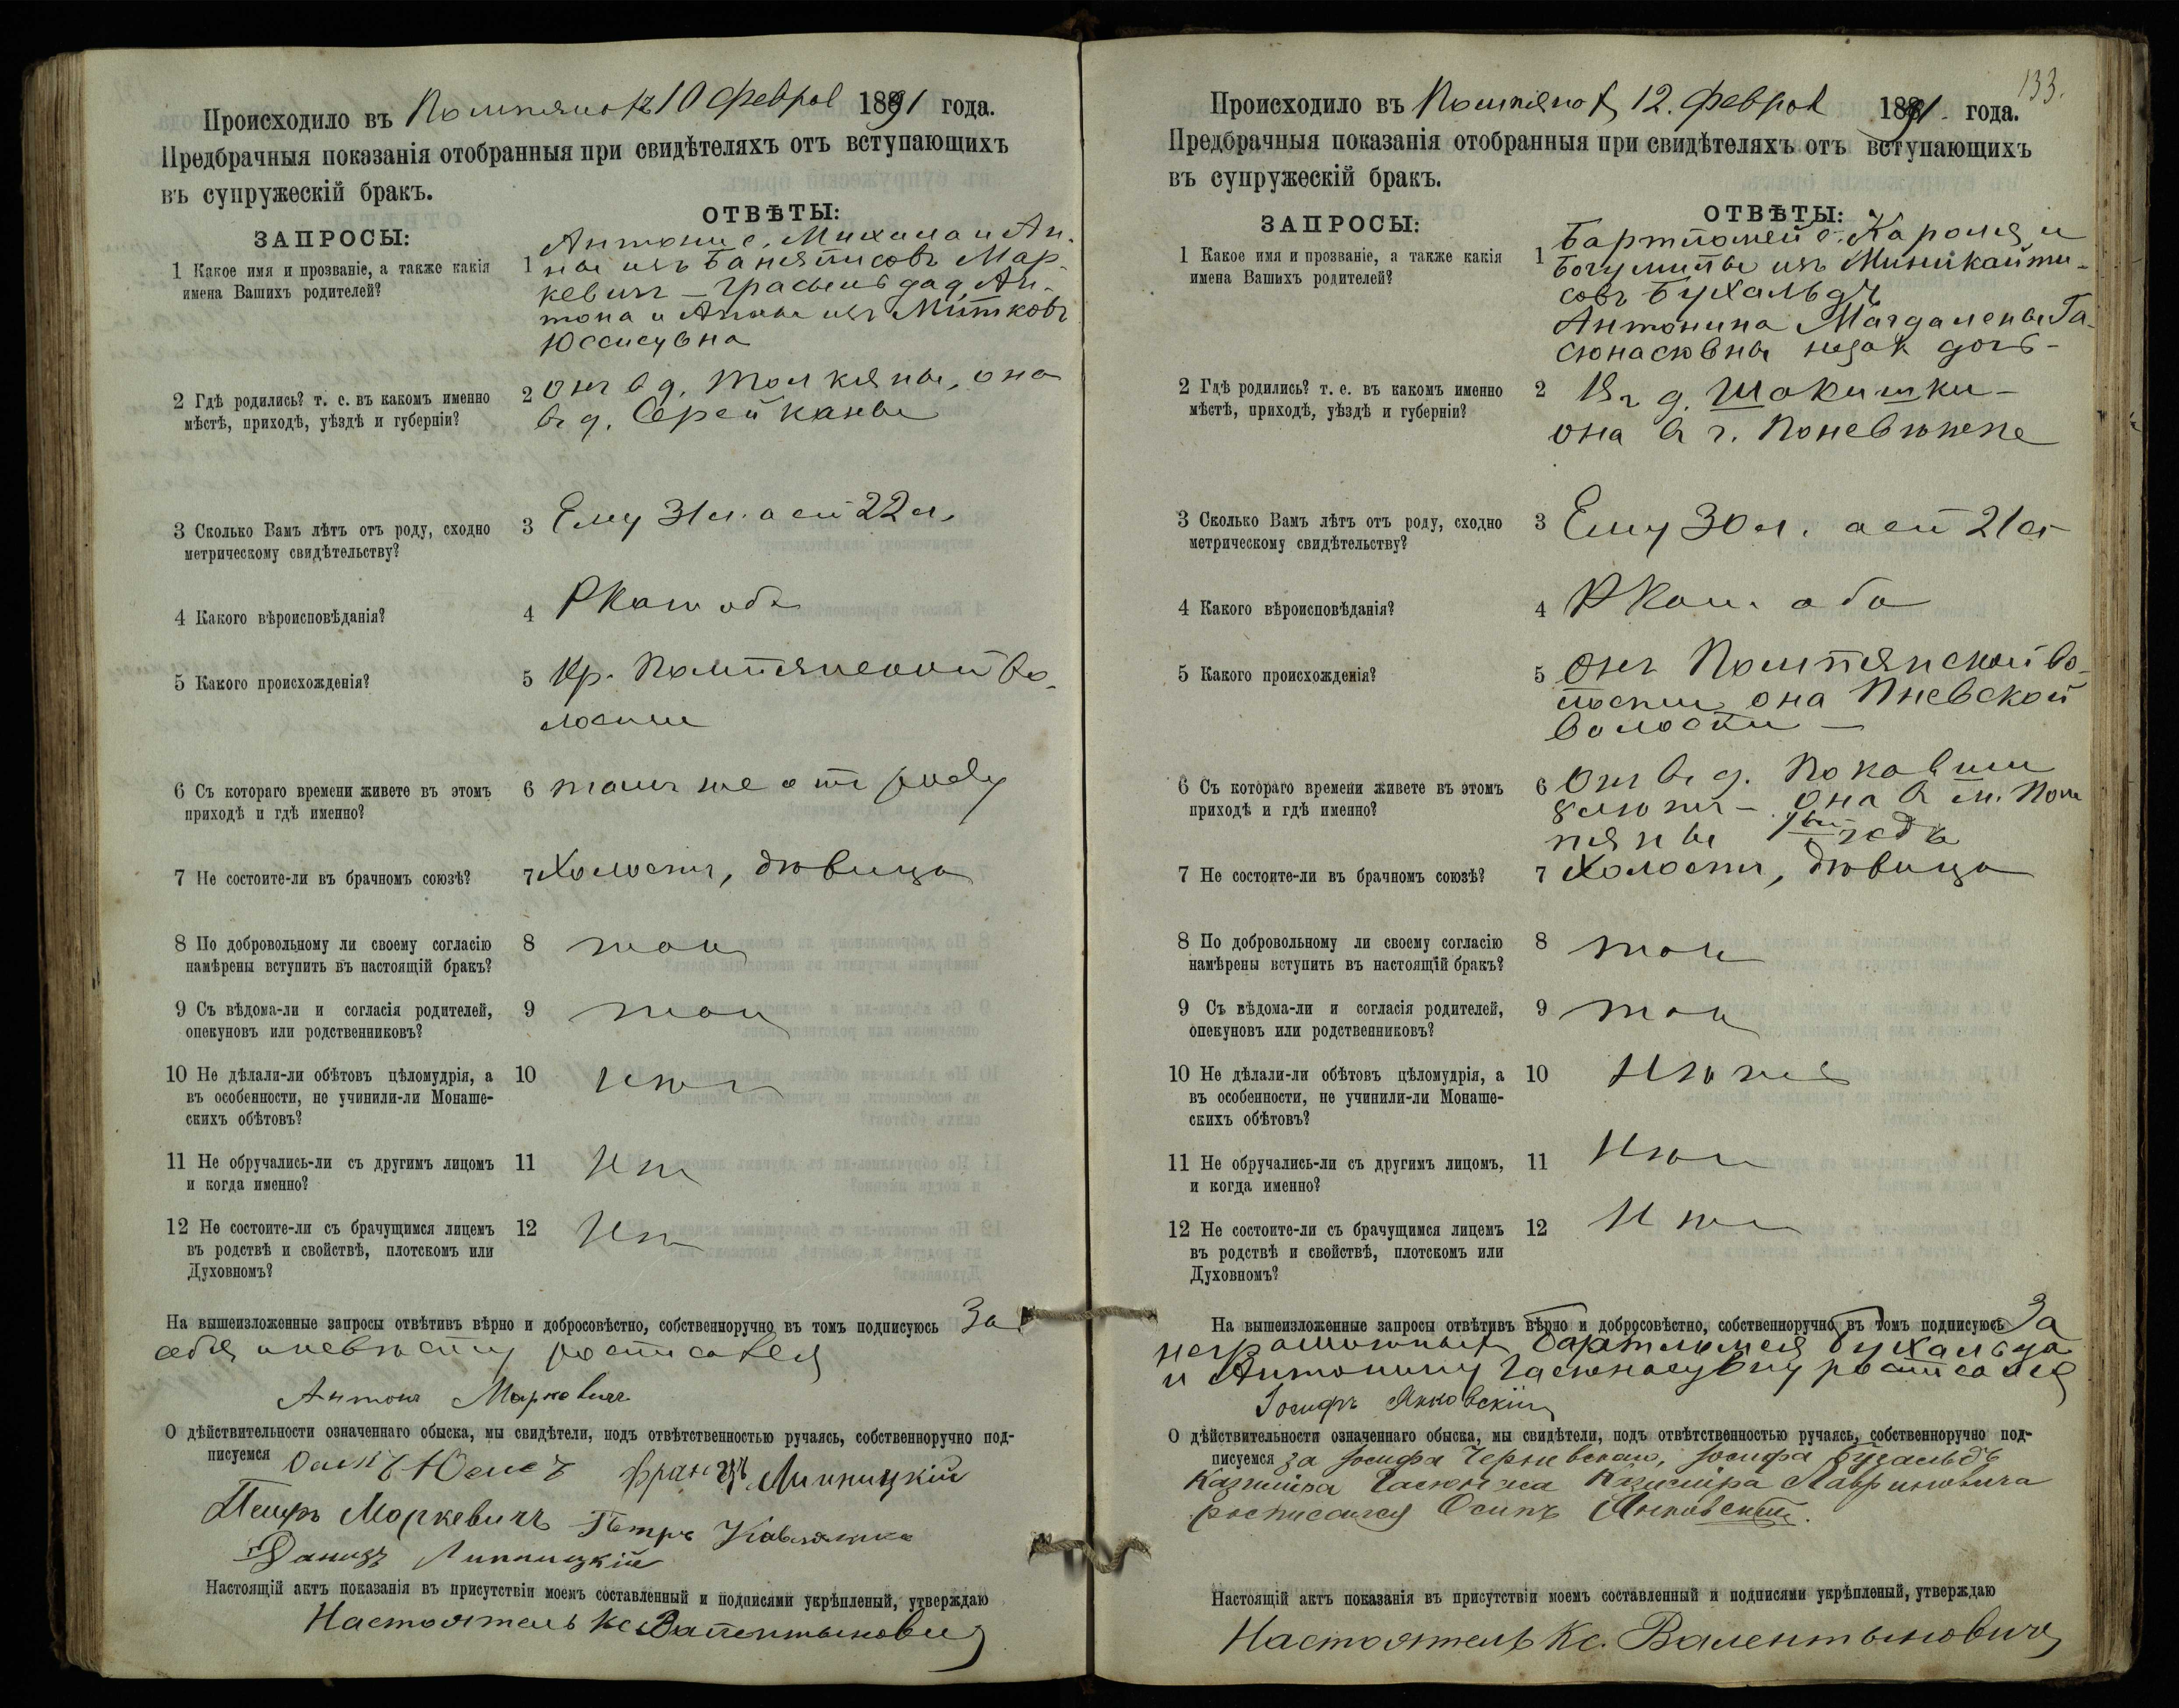 Происходило въ Помпянах 10 Феврал 1891 года.
Предбрачныя показанія отобранныя при свидѣтеляхъ отъ вступающихъ
въ супружескій бракъ.
ЗАПРОСЫ:
ОТВѢТЫ:
1 Какое имя и прозваніе, а также какія
имена Вашихъ родителей?
1 Антони с. Михала и Ан-
ны изъ Мар-
кевичъ — дад, Ан-
тона и Анны изъ Митковъ
2 Гдѣ родились? т. е. въ какомъ именно
мѣстѣ, приходѣ, уѣздѣ и губерніи?
2 онъ в д. Толкяны, она
в д. Серейканы
3 Сколько Вамъ лѣтъ отъ роду, сходно
метрическому свидѣтельству?
3 Ему 31 л. а ей 22 л.
4 Какого вѣроисповѣданія?
4 РКат оба
5 Какого происхожденія?
5 Кр. Помпянской во-
лости
6 Съ котораго времени живете въ этомъ
приходѣ и гдѣ именно?
6 тамъ же отъ роду
7 Не состоите-ли въ брачномъ союзѣ?
7 Холостъ, дѣвица
8 По добровольному ли своему согласію
намѣрены вступить въ настоящій бракъ?
8 так
9 Съ вѣдома-ли и согласія родителей,
опекуновъ или родственниковъ?
9 так
10 Не дѣлали-ли обѣтовъ цѣломудрія, а
въ особенности, не учинили-ли Монаше-
скихъ обѣтовъ?
10 Нѣтъ
11 Не обручались-ли съ другимъ лицомъ
и когда именно?
11 Нѣт
12 Не состоите-ли съ брачущимся лицемъ
въ родствѣ и свойствѣ, плотскомъ или
Духовномъ?
12 Нѣт
На вышеизложенные запросы отвѣтивъ вѣрно и добросовѣстно, собственноручно въ томъ подписуюсь За
себя и невѣсту росписался
Антонъ Маркевичъ
О дѣйствительности означеннаго обыска, мы свидѣтели, подъ отвѣтственностью ручаясь, собственноручно под-
писуемся Францъ Липницкій
Петръ Маркевичъ Петръ
Липницкій
Настоящій актъ показанія въ присутствіи моемъ составленный и подписями укрѣпленый, утверждаю
Настоятель Кс Валентыновичъ
133.
Происходило въ Помпянах 12. Феврал 1891 года.
Предбрачныя показанія отобранныя при свидѣтеляхъ отъ вступающихъ
въ супружескій бракъ.
ЗАПРОСЫ:
ОТВѢТЫ:
1 Какое имя и прозваніе, а также какія
имена Вашихъ родителей?
1 Бартломей с. Кароля и
Богумилы изъ Миникайти-
совъ Бухальдъ
Антонина Магдалены Га-
сюнасювны незак дочь -
2 Гдѣ родились? т. е. въ какомъ именно
мѣстѣ, приходѣ, уѣздѣ и губерніи?
2 Въ д. Шакишки -
она в г. Поневѣже
3 Сколько Вамъ лѣтъ отъ роду, сходно
метрическому свидѣтельству?
3 Ему 30 л. а ей 21 л
4 Какого вѣроисповѣданія?
4 РКат. оба
5 Какого происхожденія?
5 Онъ Помпянской во-
лости она Пневской
волости —
6 Съ котораго времени живете въ этомъ
приходѣ и гдѣ именно?
6 Онъ в д.
8 лѣтъ — Она в м. Пом
пяны 1вый годъ
7 Не состоите-ли въ брачномъ союзѣ?
7 Холостъ, дѣвица
8 По добровольному ли своему согласію
намѣрены вступить въ настоящій бракъ?
8 так
9 Съ вѣдома-ли и согласія родителей,
опекуновъ или родственниковъ?
9 так
10 Не дѣлали-ли обѣтовъ цѣломудрія, а
въ особенности, не учинили-ли Монаше-
скихъ обѣтовъ?
10 Нѣтъ
11 Не обручались-ли съ другимъ лицомъ,
и когда именно?
11 Нѣтъ
12 Не состоите-ли съ брачущимся лицемъ
въ родствѣ и свойствѣ, плотскомъ или
Духовномъ?
12 Нѣтъ
На вышеизложенные запросы отвѣтивъ вѣрно и добросовѣстно, собственноручно въ томъ подписуюсь За
неграмотных Бартломея Бухальда
и Антонину Гасюнасувну росписался
Іосифъ Янковскій
О дѣйствительности означеннаго обыска, мы свидѣтели, подъ отвѣтственностью ручаясь, собственноручно под-
писуемся за Іосифа Черневскаго, Іосифа Бухальдъ
Казиміра Казиміра Лавриновича
росписался Осипъ Янковскій.
Настоящій актъ показанія въ присутствіи моемъ составленный и подписями укрѣпленый, утверждаю
Настоятель Кс. Валентыновичъ